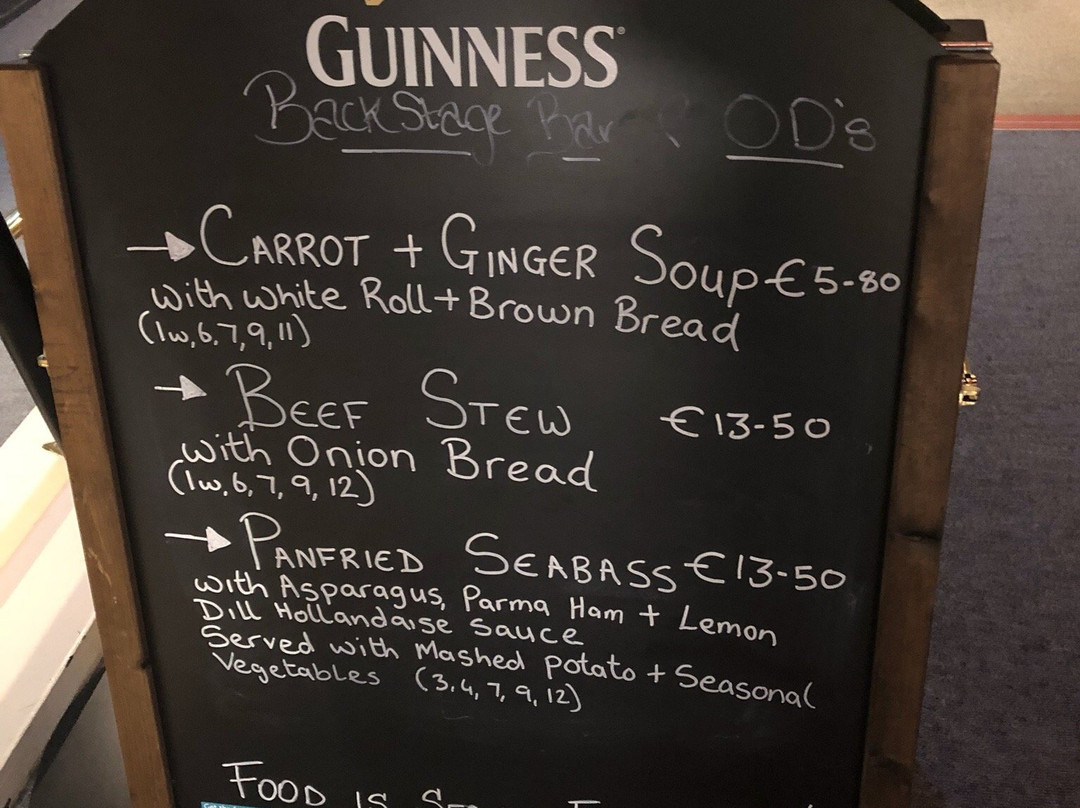 GUINNESS
BackStage Bar & OD's
→ CARROT + GINGER SOUP €5-80
with white Roll + Brown Bread
(1w,6,7,9,11)
→ BEEF STEW €13-50
with Onion Bread
(1w,6,7,9,12)
→ PANFRIED SEABASS €13-50
with Asparagus, Parma Ham + Lemon
Dill Hollandaise sauce
Served with Mashed potato + Seasonal
Vegetables (3,4,7,9,12)
FOOD IS